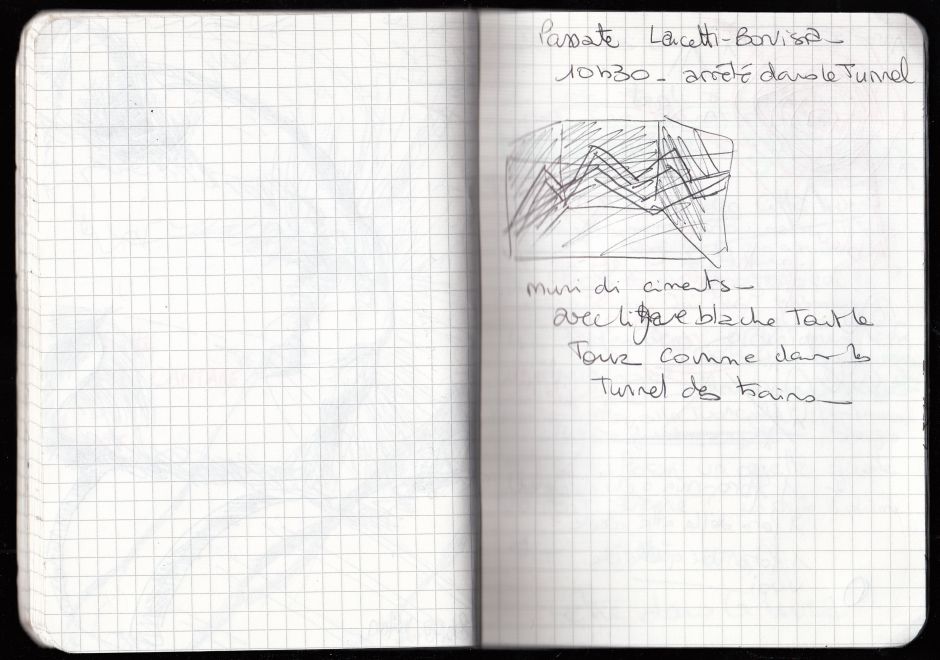 Passate Lancetti-Bovisa
10h30 - arrêté dans le Tunnel
muri di ciments
avec ligne blache Tout le
Tour comme dans les
Tunnel des trains